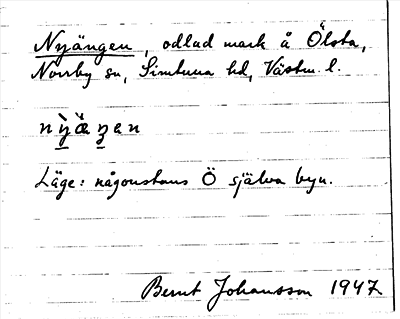 Nyängen, odlad mark å Ölsta,
Norrby sn, Simtuna hd, Västm. l.
Läge: någonstans Ö själva byn.
Bernt Johansson 1947